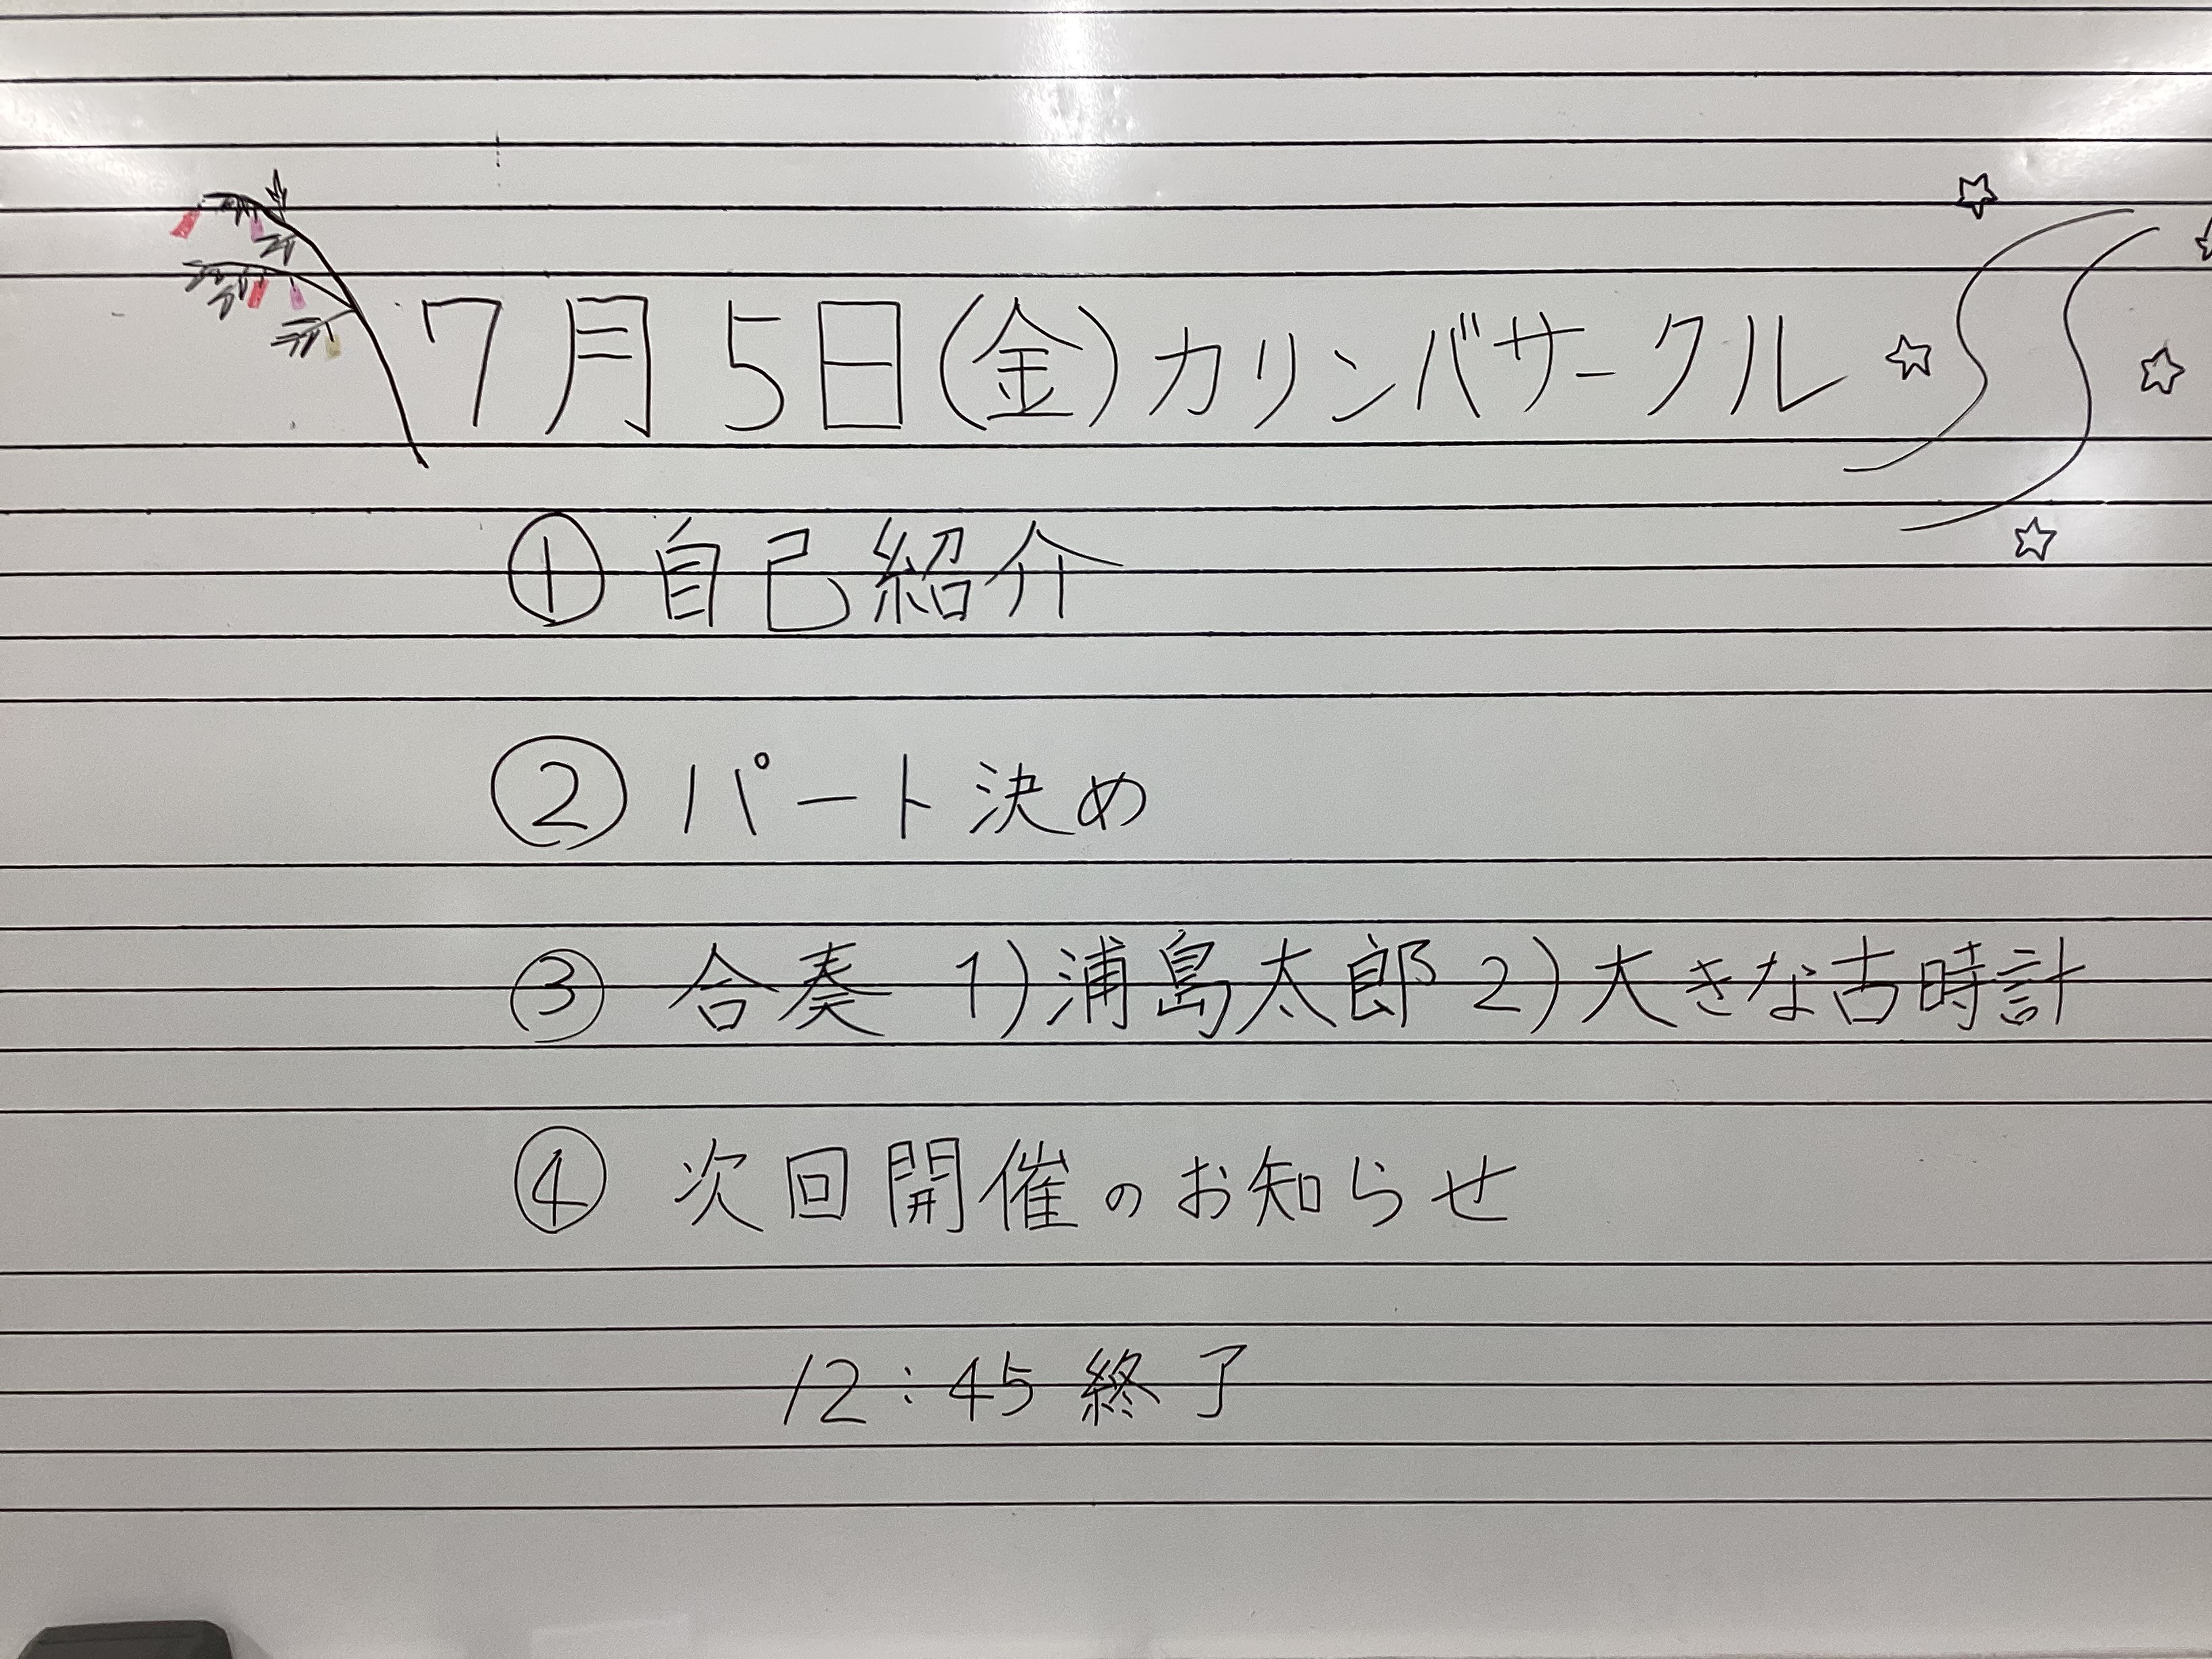 7月5日(金)カリンバサークル
①自己紹介
②パート決め
③合奏 1)浦島太郎 2)大きな古時計
④次回開催のお知らせ
12:45終了